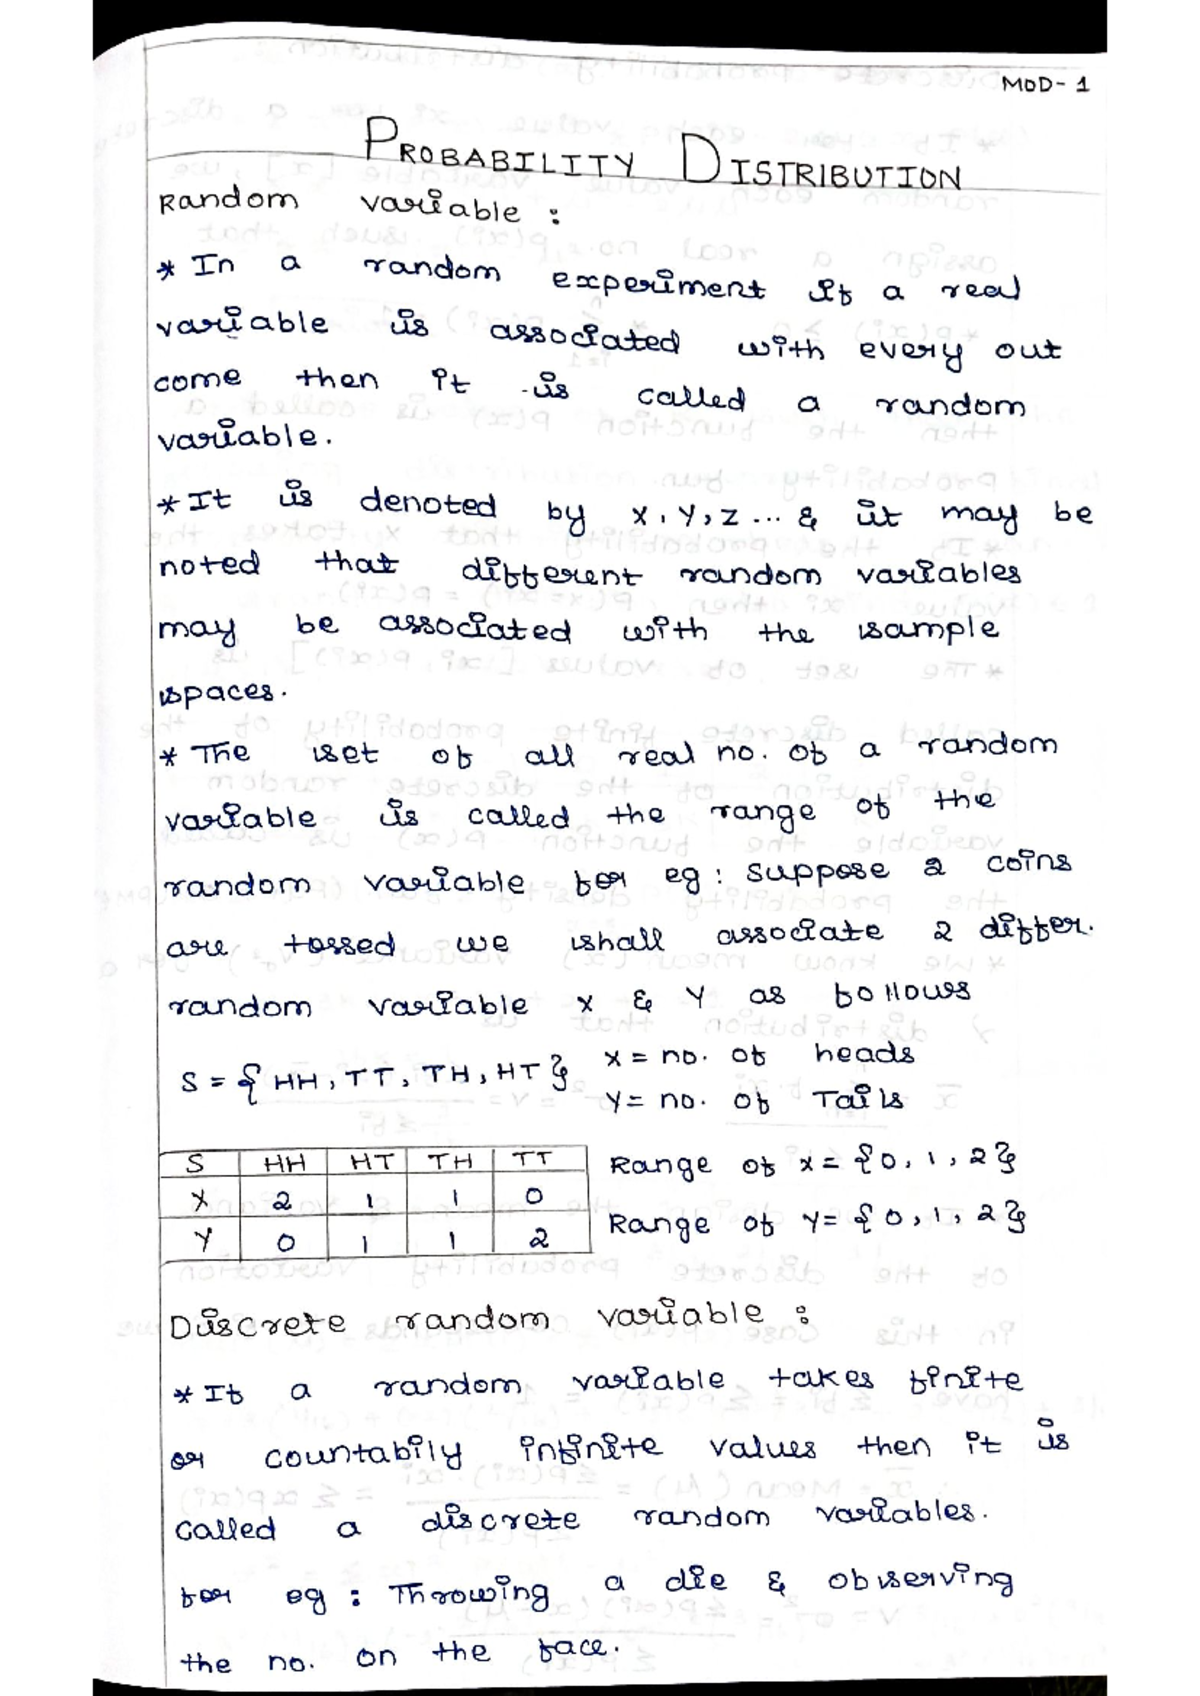 MOD- 1
PROBABILITY DISTRIBUTION
Random variable :
* In a random experiment if a real
variable is associated with every out
come then it is called a random
variable.
* It is denoted by X, Y, Z ... & it may be
noted that different random variables
may be associated with the sample
spaces.
* The set of all real no. of a random
variable is called the range of the
random variable for eg : suppose 2 coins
are tossed we shall associate 2 differ.
random variable X & Y as follows
S = { HH, TT, TH, HT } X = no. of heads
Y = no. of Tails
S HH HT TH TT Range of X = {0, 1, 2}
X 2 1 1 0
Y 0 1 1 2 Range of Y = {0, 1, 2}
Discrete random variable :
* If a random variable takes finite
or countabily infinite values then it is
called a discrete random variables.
for eg : Throwing a die & observing
the no. on the face.